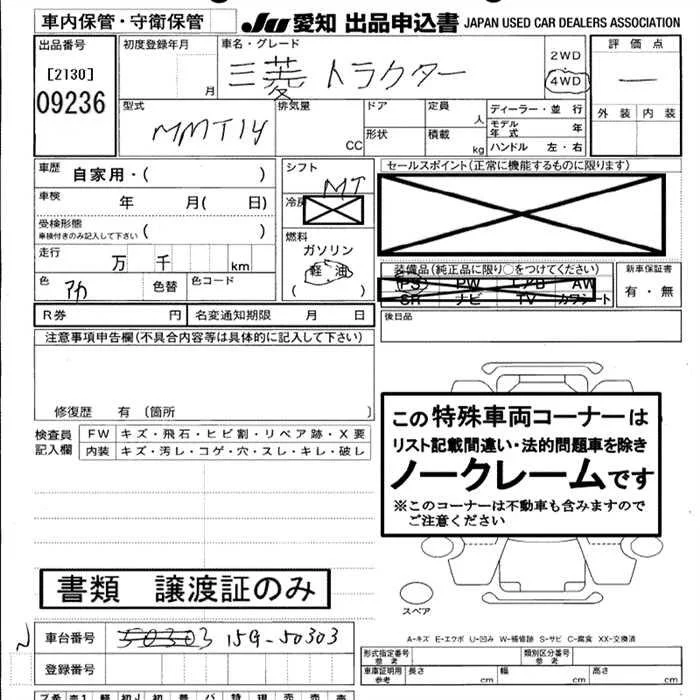 車内保管・守衛保管
JU 愛知 出品申込書 JAPAN USED CAR DEALERS ASSOCIATION
出品番号
[2130]
09236
初度登録年月
月
車名・グレード
三菱 トラクター
2WD
4WD
評価点
―
外装 内装
型式
MMT14
排気量
CC
ドア
形状
定員
人
積載
kg
ディーラー・並行
モデル年式 年
ハンドル 左・右
車歴
自家用・( )
車検
年 月( 日)
受検形態
車検付きのみ記入して下さい ( )
走行
万 千 km
色
アカ
色替
色コード
シフト
MT
冷房
燃料
ガソリン
軽油
( )
セールスポイント(正常に機能するものに限ります)
装備品(純正品に限り○をつけてください)
PS PW エアB AW
SR ナビ TV カワシート
新車保証書
有・無
R券 円
名変通知期限 月 日
後日品
注意事項申告欄(不具合内容等は具体的に記入して下さい)
修復歴 有 〔箇所 〕
検査員記入欄
FW キズ・飛石・ヒビ割・リペア跡・X要
内装 キズ・汚レ・コゲ・穴・スレ・キレ・破レ
この特殊車両コーナーは
リスト記載間違い・法的問題車を除き
ノークレームです
※このコーナーは不動車も含みますので
ご注意ください
書類 譲渡証のみ
スペア
A-キズ E-エクボ U-凹み W-補修跡 S-サビ C-腐食 XX-交換済
車台番号
50303 15G-50303
登録番号
形式指定番号
参考
類別区分番号
参考
車庫証明用
参考
長さ cm 幅 cm 高さ cm